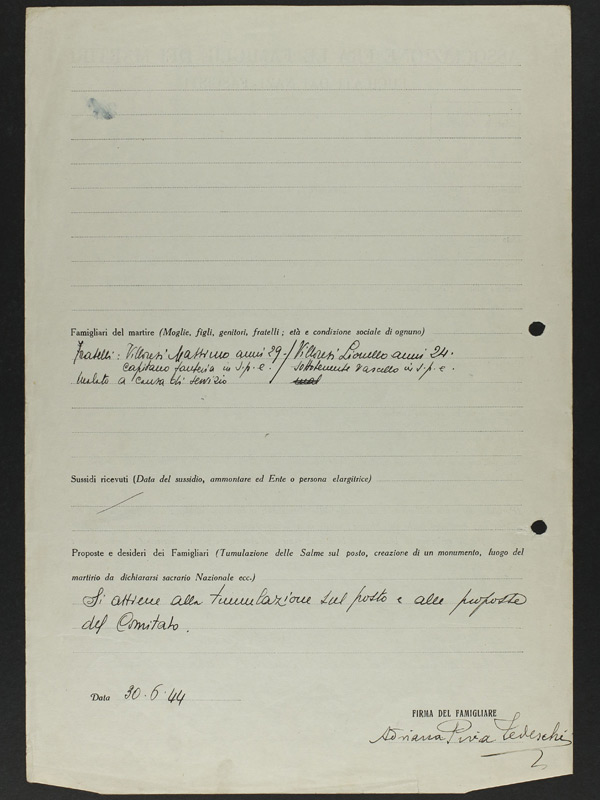 Famigliari del martire (Moglie, figli, genitori, fratelli ; età e condizione sociale di ognuno)
Fratelli : Villoresi Massimo anni 29 - / Villoresi Lionello anni 24.
capitano fanteria in s.p.e. / sottotenente vascello in s.p.e.
Malato a causa di servizio
Sussidi ricevuti (Data del sussidio, ammontare ed Ente o persona elargitrice)
Proposte e desideri dei Famigliari (Tumulazione delle Salme sul posto, creazione di un monumento, luogo del
martirio da dichiararsi sacrario Nazionale ecc.)
Si attiene alla tumulazione sul posto e alle proposte
del Comitato.
Data 30.6.44
FIRMA DEL FAMIGLIARE
Adriana Piva Tedeschi